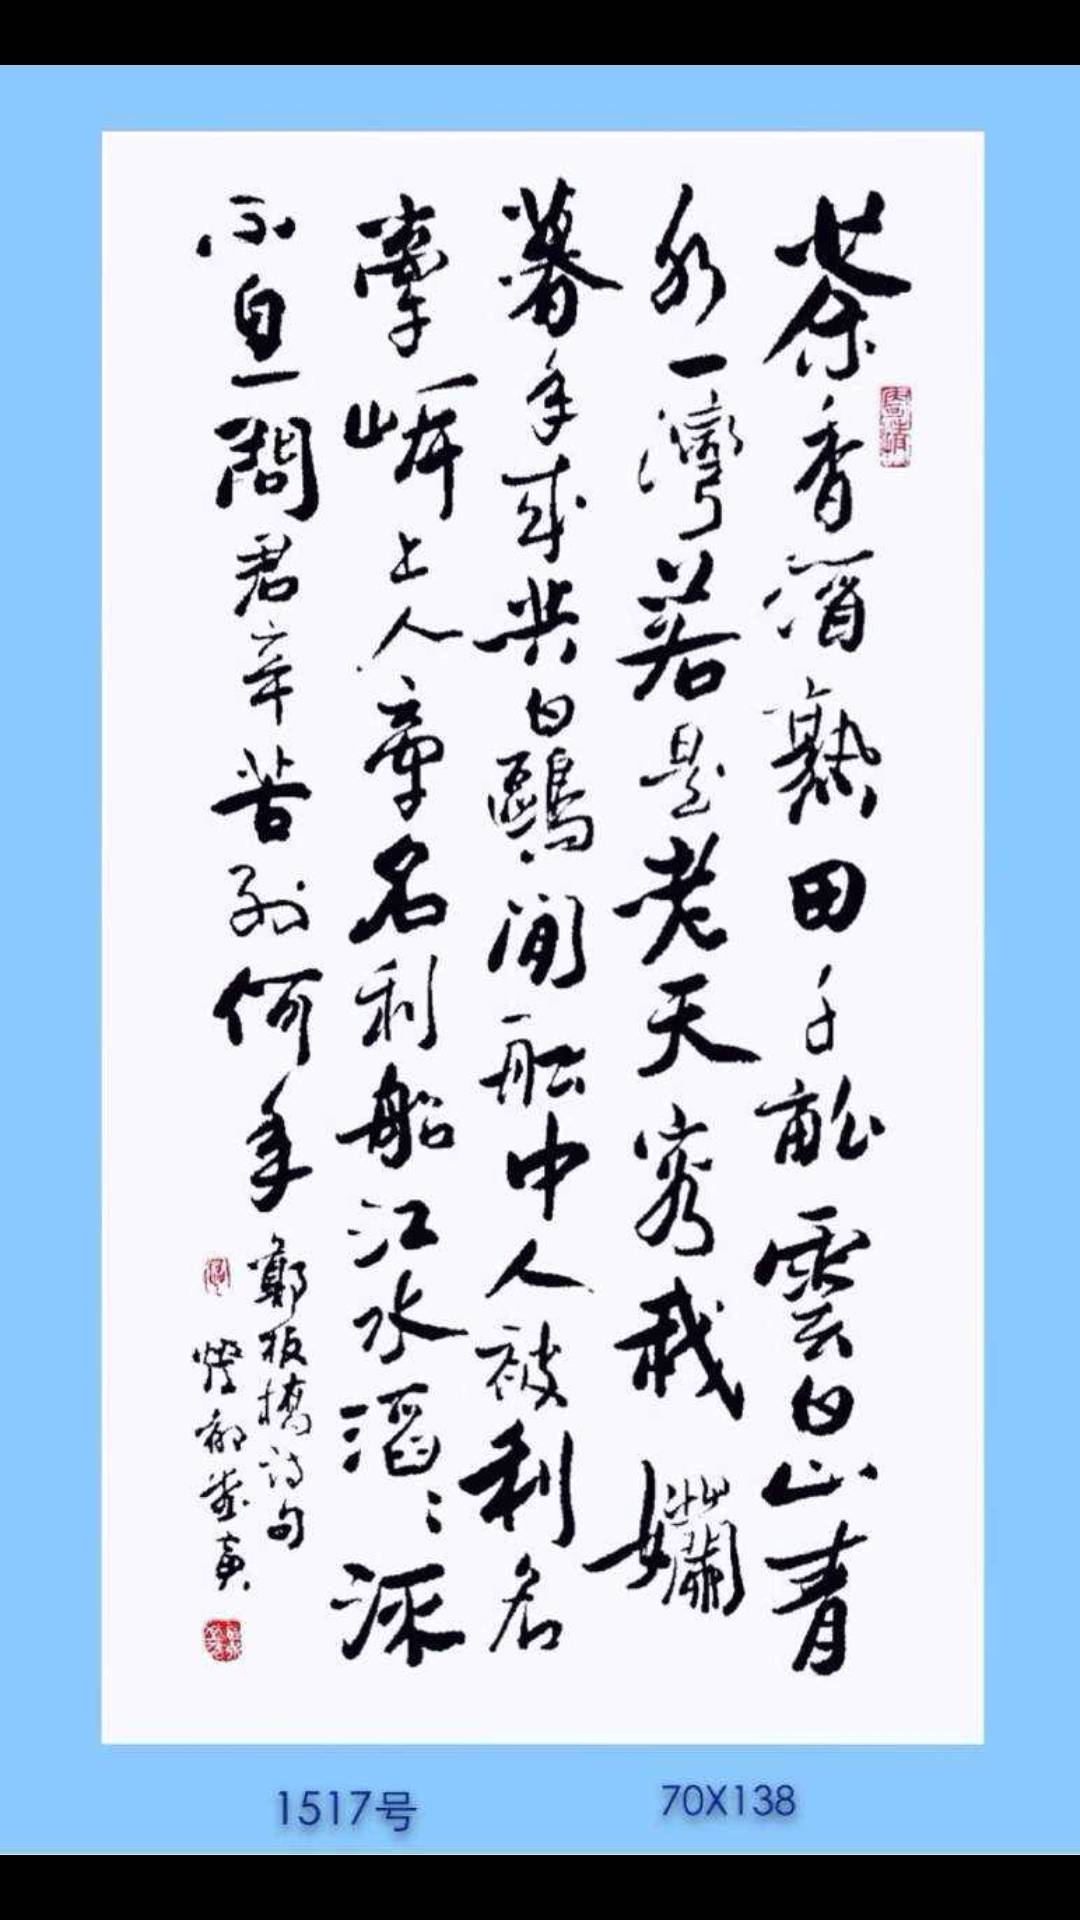 茶香酒熟田千畝雲白山青
水一灣若是老天容我懶
暮年來共白鷗閒船中人被利名
牽岸上人牽名利船江水滔滔流
不息問君辛苦到何年
鄭板橋詩句
1517号
70X138